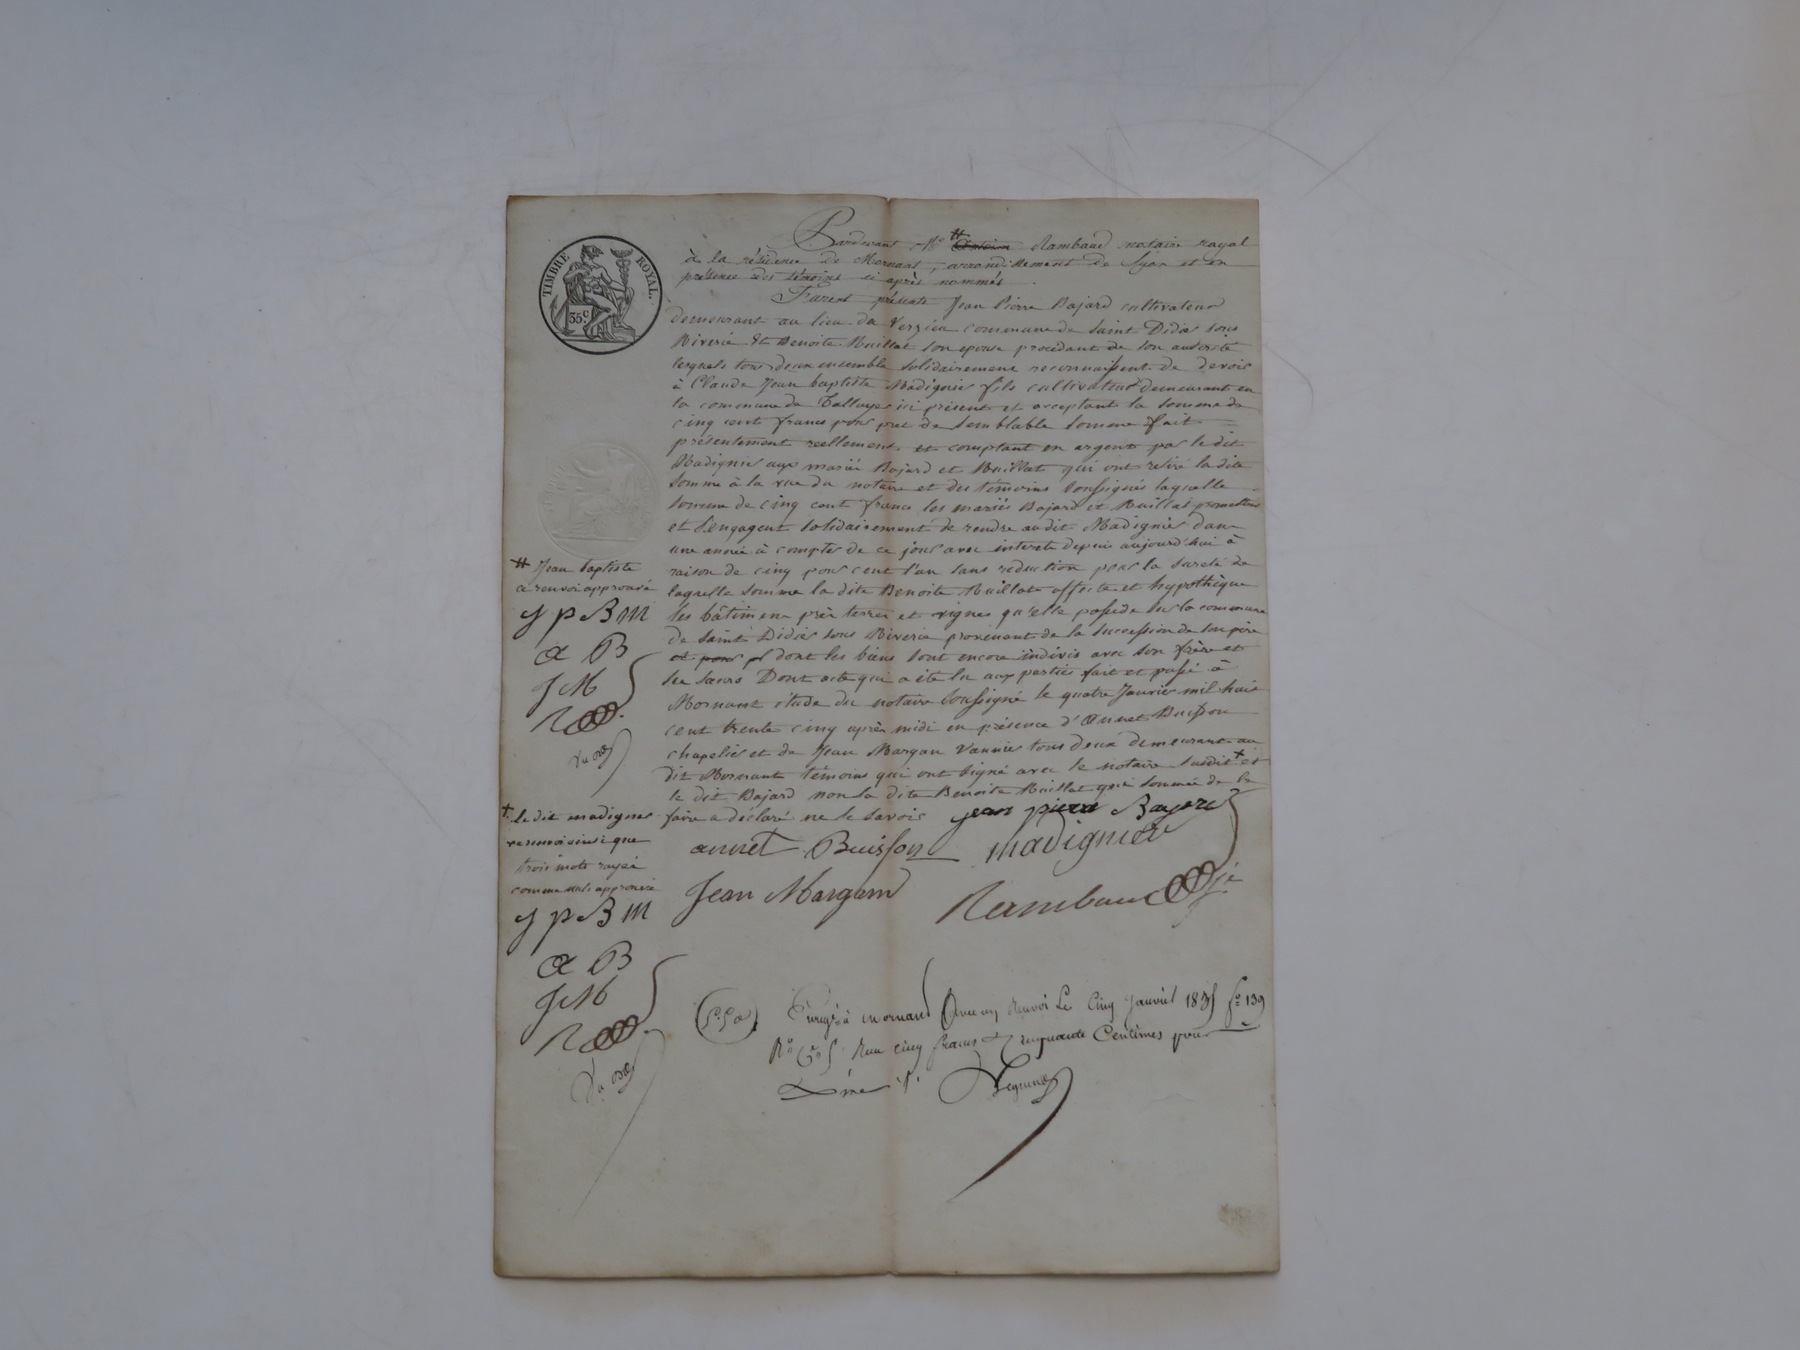 TIMBRE ROYAL.
35 c.
Pardevant Me # Rambaud notaire royal
à la résidence de Mornant, arrondissement de Lyon et en
présence des témoins ci après nommés
Furent présents Jean Pierre Bajard cultivateur
demeurant au lieu du Verzieu commune de Saint Didier sous
Riverie Et Benoite Muillat son epouse procédant de son autorité
lesquels tous deux ensemble solidairement reconnaissent de devoir
à Claude Jean baptiste Madignier fils cultivateur demeurant en
la commune de Talluyer ici présent et acceptant la somme de
cinq cent francs pour pret de semblable somme fait
présentement reellement et comptant en argent par le dit
Madignier aux mariés Bajard et Muillat qui ont retiré la dite
somme à la vue du notaire et des témoins soussignés laquelle
somme de cinq cent francs les mariés Bajard et Muillat promettent
et s'engagent solidairement de rendre au dit Madignier dans
une année à compter de ce jour avec interets depuis aujourd'hui à
raison de cinq pour cent l'an sans reduction pour la sureté de
laquelle somme la dite Benoite Muillat affecte et hypothèque
les bâtimens prés terres et vignes qu'elle possede sur la commune
de Saint Didier sous Riverie provenant de la succession de son père
et pour dont les biens sont encore indivis avec son frère et
ses sœurs Dont acte qui a été lu aux parties fait et passé à
Mornant étude du notaire soussigné le quatre Janvier mil huit
cent trente cinq après midi en présence d'Annet Buisson
chapelier et de Jean Margan Vannier tous deux demeurant au
dit Mornant témoins qui ont signé avec le notaire susdit + et
le dit Bajard non la dite Benoite Muillat qui sommée de le
faire a déclaré ne le savoir Jean pierre Bajard
annet Buisson madignier
Jean Margam Rambaud
# Jean baptiste
ce renvoi approuvé
J P B M
A B
J M
R
+ le dit madignier
renvoi ainsi que
trois mots rayés
comme nuls approuvé
J P B M
A B
J M
R
Enregé à Mornant renvoi Le Cinq Janvier 1835 fo 139
Ro Co 5. Reçu cinq francs Cinquante Centimes pour